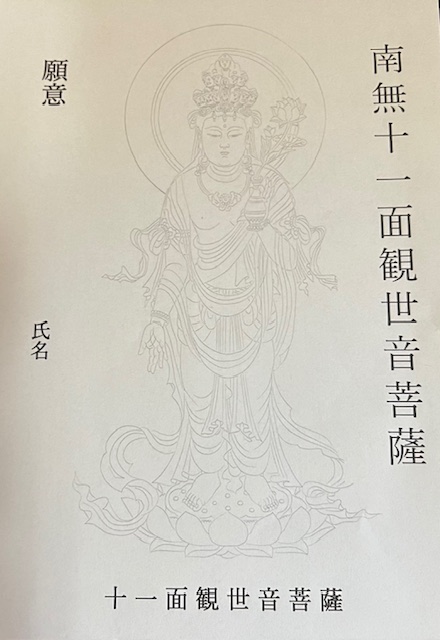 南無十一面観世音菩薩
願意
氏名
十一面観世音菩薩